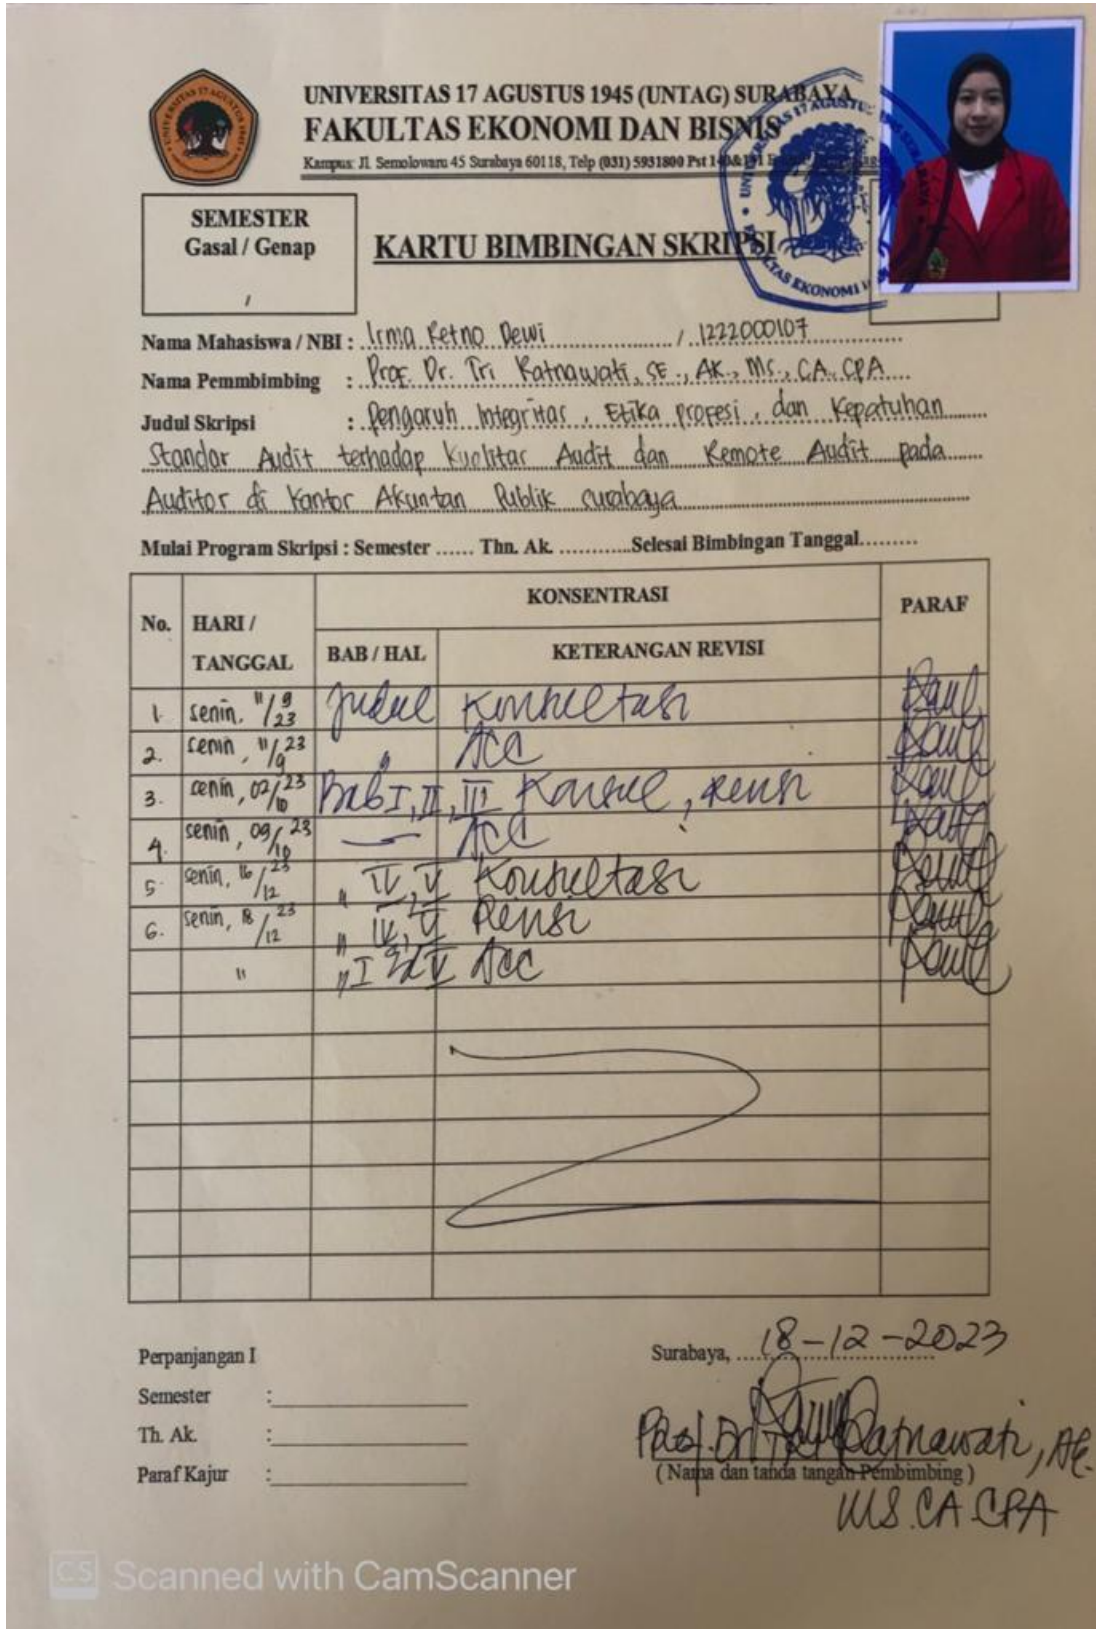 UNIVERSITAS 17 AGUSTUS 1945 (UNTAG) SURABAYA
FAKULTAS EKONOMI DAN BISNIS
Kampus: Jl. Semolowaru 45 Surabaya 60118, Telp (031) 5931800 Pst 140&141
SEMESTER
Gasal / Genap
/
KARTU BIMBINGAN SKRIPSI
Nama Mahasiswa / NBI : Irma Retno Dewi / 1222000107
Nama Pemmbimbing : Prof. Dr. Tri Ratnawati, SE., AK., MS., CA., CPA
Judul Skripsi : Pengaruh Integritas, Etika profesi, dan Kepatuhan
Standar Audit terhadap Kualitas Audit dan Remote Audit pada
Auditor di Kantor Akuntan Publik surabaya
Mulai Program Skripsi : Semester ...... Thn. Ak. ............Selesai Bimbingan Tanggal.........
No. HARI / TANGGAL KONSENTRASI PARAF
BAB / HAL KETERANGAN REVISI
1. senin, 11/9 23 Judul Konsultasi
2. senin, 11/9 23 " ACC
3. senin, 02/10 23 Bab I, II, III Konsul, Revisi
4. senin, 09/10 23 ACC
5. senin, 16/12 23 " IV, V Konsultasi
6. senin, 18/12 23 " IV, V Revisi
" " I V ACC
Perpanjangan I
Semester :
Th. Ak. :
Paraf Kajur :
Surabaya, 18-12-2023
Prof. Dr. Tri Ratnawati, AK.
( Nama dan tanda tangan Pembimbing )
MS. CA. CPA
CS Scanned with CamScanner